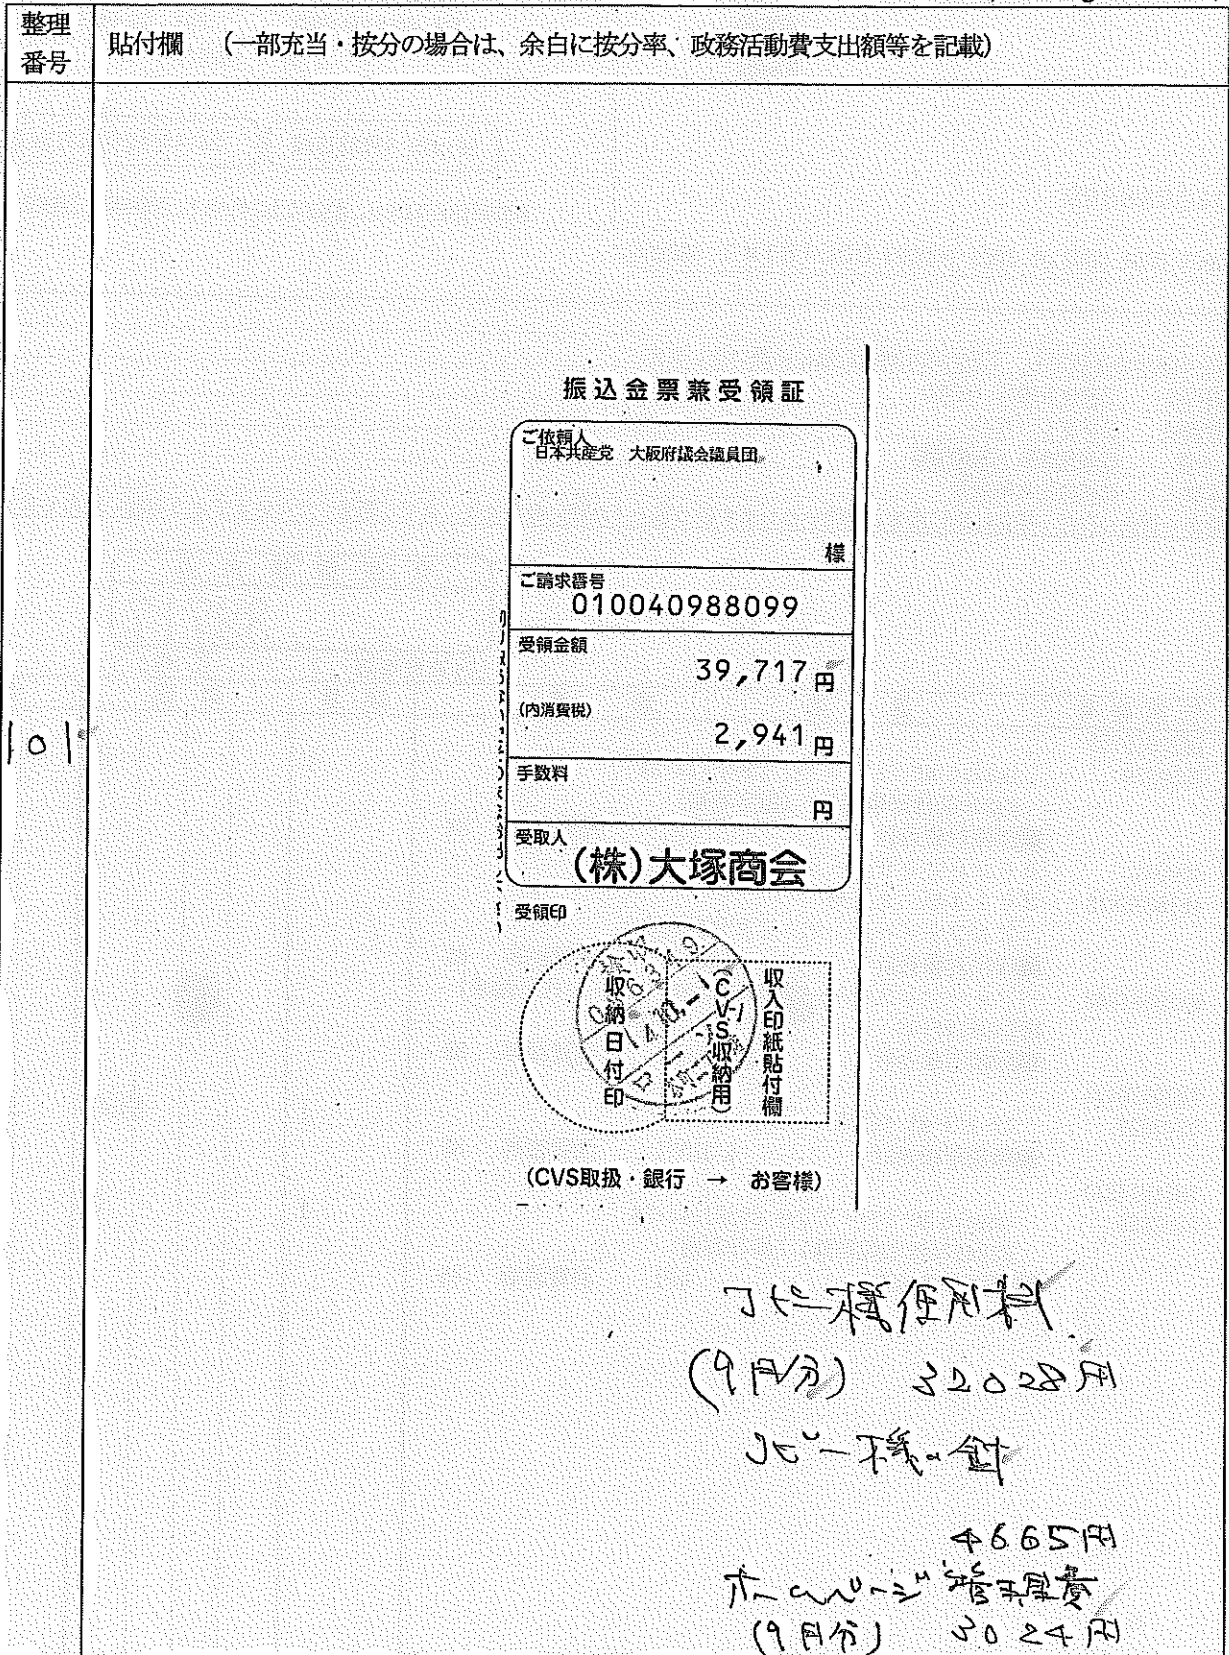 整理
番号
貼付欄 (一部充当・按分の場合は、余白に按分率、政務活動費支出額等を記載)
101
振込金票兼受領証
ご依頼人
日本共産党 大阪府議会議員団
様
ご請求番号
010040988099
受領金額
39,717円
(内消費税)
2,941円
手数料
円
受取人
(株)大塚商会
受領印
収納日付印
(CVS収納用)
収入印紙貼付欄
(CVS取扱・銀行 → お客様)
コピー機使用料
(9月分) 32028円
コピー機の針
4665円
ホームページ管理費
(9月分) 3024円